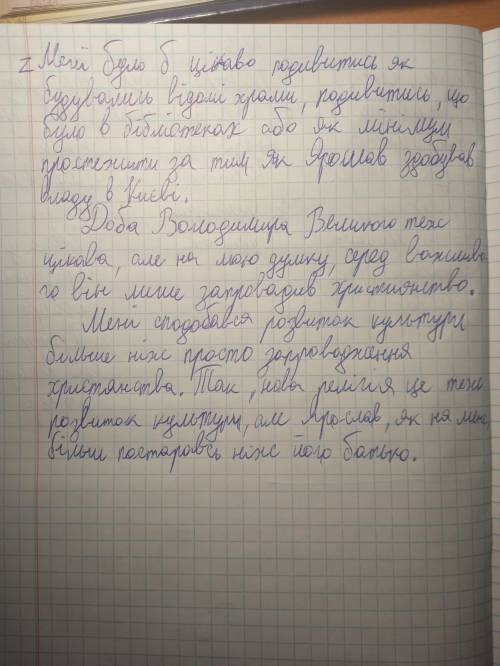 Z Мені було б цікаво подивитись як
будувались відомі храми, подивитись, що
було в бібліотеках або як мінімум
простежити за тим як Ярослав здобував
владу в Києві.
Доба Володимира Великого теж
цікава, але на мою думку, серед важливо
го він лише запровадив християнство.
Мені сподобався розвиток культури
більше ніж просто запровадження
христянства. Так, нова релігія це теж
розвиток культури, але Ярослав, як на мене
більш постарався ніж його батько.